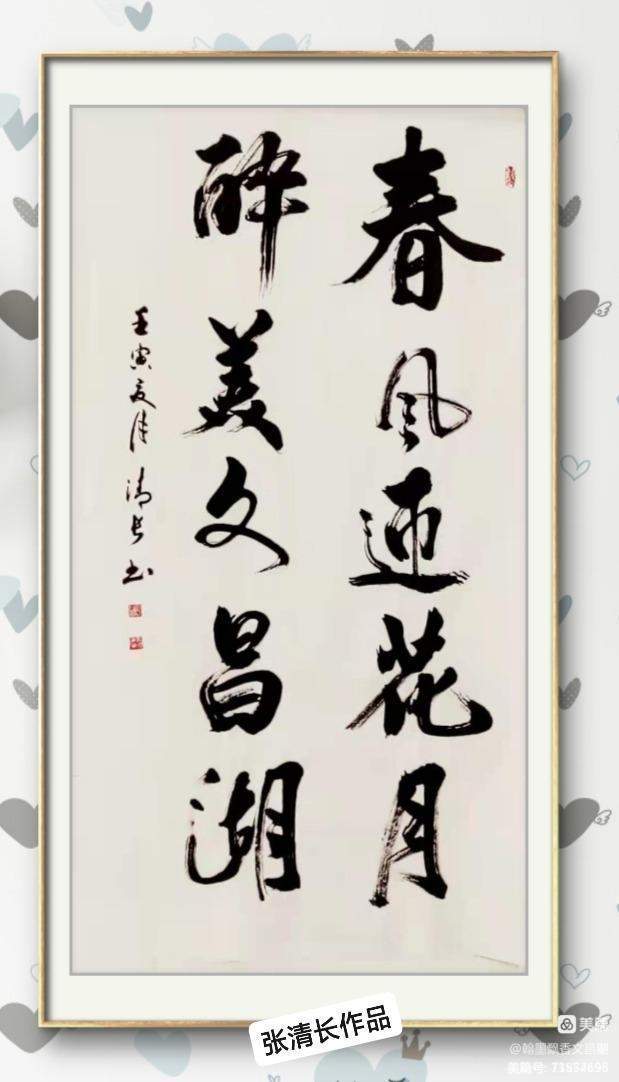 春风迎花月
醉美文昌湖
壬寅夏清长书
张清长作品
美篇
@翰墨飘香文昌湖
美篇号: 71534698